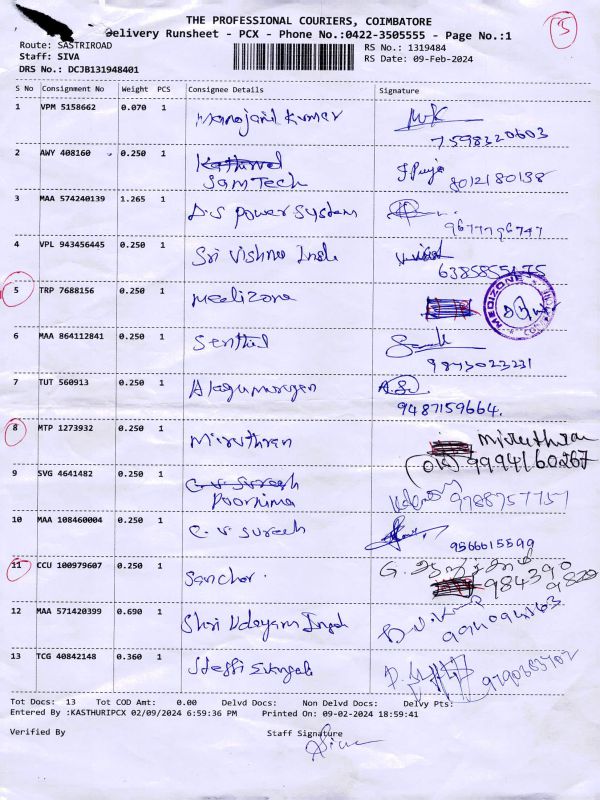 THE PROFESSIONAL COURIERS, COIMBATORE
Delivery Runsheet - PCX - Phone No.:0422-3505555 - Page No.:1
3
Route: SASTRIROAD
RS No : 1319484
Staff: SIVA
RS Date: 09-Feb-2024
DRS No: DCJB131948401
S No Consignment No Weight PCS Consignee Details Signature
1 VPM 5158662 0.070 1 Manojanil kumar
7598320603
2 AWY 408160 0.250 1
Sam Tech 8012180138
3 MAA 574240139 1.265 1 D.S power system
9677796747
4 VPL 943456445 0.250 1 Sri Vishnu Inds
6385855475
5 TRP 7688156 0.250 1 Medizone MEDIZONE
6 MAA 864112841 0.250 1 Senthil
9843023231
7 TUT 560913 0.250 1 Alagumurugan
9487159664.
8 MTP 1273932 0.250 1 Miruthran Miruthran
9994160267
9 SVG 4641482 0.250 1 C.V Suresh
Poornima 9788757757
10 MAA 108460004 0.250 1 C.V Suresh
9566615599
11 CCU 100979607 0.250 1 Sanchar. G.
984390
9820
12 MAA 571420399 0.690 1 Shri Udayam Ingoh
13 TCG 40842148 0.360 1
9790383702
Tot Docs: 13 Tot COD Amt: 0.00 Delvd Docs: Non Delvd Docs: Delvy Pts:
Entered By :KASTHURIPCX 02/09/2024 6:59:36 PM Printed On: 09-02-2024 18:59:41
Verified By Staff Signature